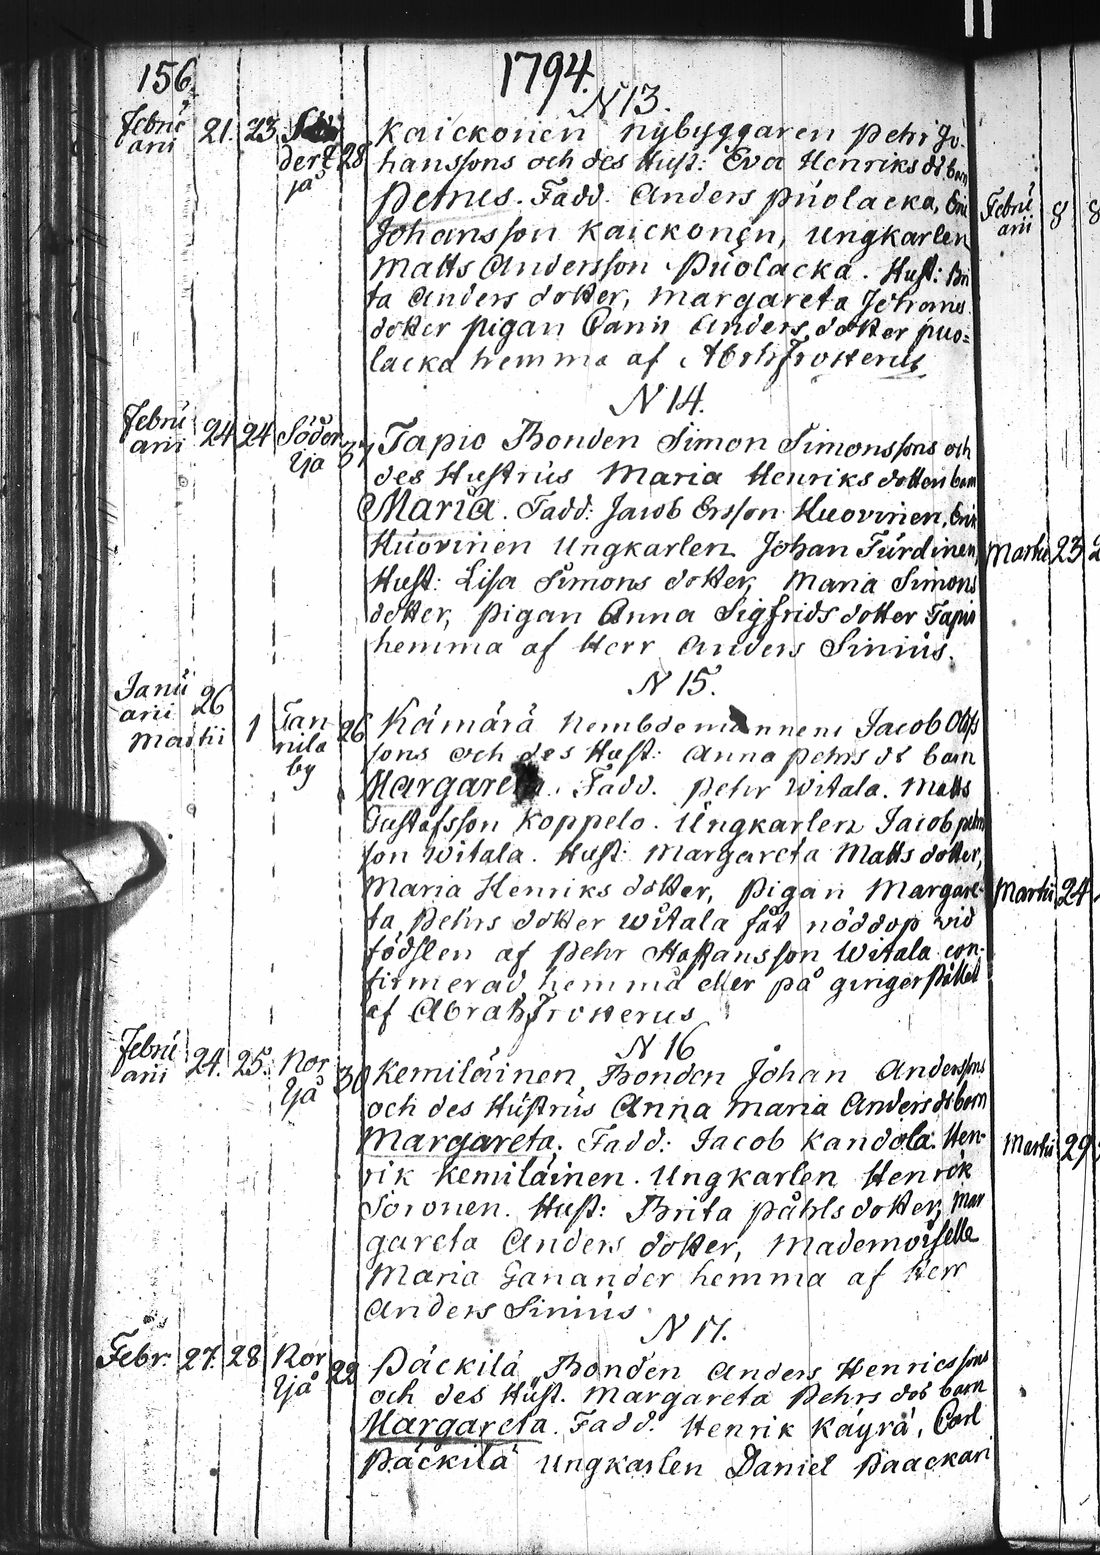 156. 1794.
N 13.
Febru 21. 23. Kaickonen nybyggaren Pehr Jo-
arii derå 28 hanssons och des Hust: Eva Henriks dr. barn
Petrus. Fadd. Anders Puolacka, Eric
Johansson Kaickonen, Ungkarlen
Matts Andersson Puolacka. Hust: Bri
ta Anders dotter, Margareta Johans
dotter pigan Carin Anders dotter Puo=
lacka hemma af Abrh Frosterus
N 14.
Febru 24 24 Söder 37 Tapio Bonden Simon Simonssons och
arii ljå des Hustrus Maria Henriks dotters barn
Maria. Fadd: Jacob Ersson Huovinen, Eric
Huovinen Ungkarlen Johan Turdinen,
Hust: Lisa Simons dotter, Maria Simons
dotter, pigan Anna Sigfrids dotter Tapio
hemma af Herr Anders Sinius.
N 15.
Janu 26
arii
Martii 1 Tan 26 Kämärä Nembdemannens Jacob Olofs
nila sons och des Hust: Anna Pehrs dr barn
by Margareta. Fadd. Pehr Witala. Matts
Gustafsson Koppelo. Ungkarlen Jacob Pehrs
son Witala. Hust: Margareta Matts dotter,
Maria Henriks dotter, pigan Margare-
ta Pehrs dotter Witala fåt nöddop vid
födslen af Pehr Staffansson Witala con-
firmerad hemma eller på giriger stället
af Abrah Frosterus
N 16
Febru 24. 25. Nor 30 Kemiläinen, Bonden Johan Anderssons
arii ljå och des Hustrus Anna Maria Anders dr barn
Margareta. Fadd: Jacob Kandola. Hen-
rik Kemiläinen. Ungkarlen Henrik
Soronen. Hust: Brita Påhls dotter, Mar
gareta Anders dotter, Mademoiselle
Maria Ganander hemma af Herr
Anders Sinius.
N 17.
Febr. 27. 28 Nor 22 Päckilä Bonden Anders Henricssons
ljå och des Hust. Margareta Pehrs dot barn
Margareta. Fadd: Henrik Käyrä, Carl
Päckilä Ungkarlen Daniel Paackari
Febru 8 8
arii
Martii 23 2
Martii 24
Martii 29